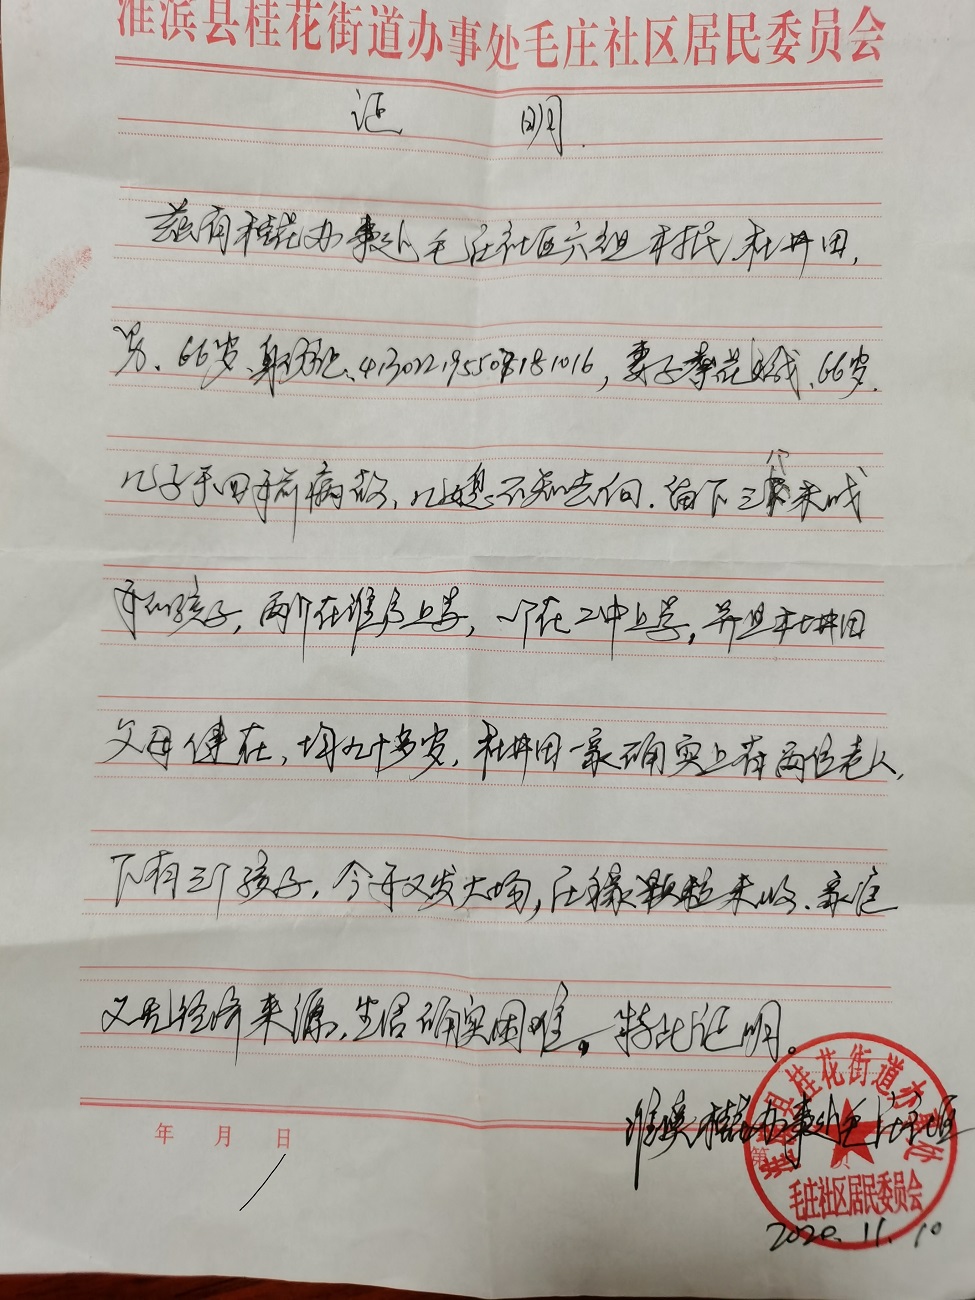 淮滨县桂花街道办事处毛庄社区居民委员会
证 明.
兹有桂花办事处毛庄社区六组村民杜井田,
男、66岁、身份证、413022195507181016,妻子李花成、66岁.
儿子于四年前病故、儿媳不知去向.留下三个未成
年的孩子,两个在淮师上学,一个在二中上学,并且杜井田
父母健在,均九十多岁,杜井田一家确实上有两位老人,
下有三个孩子,今年又发大水,庄稼颗粒未收、家庭
又无经济来源.生活确实困难。特此证明。
淮滨桂花办事处毛庄社区
年 月 日
第 页
淮滨县桂花街道办事处
毛庄社区居民委员会
2020.11.10